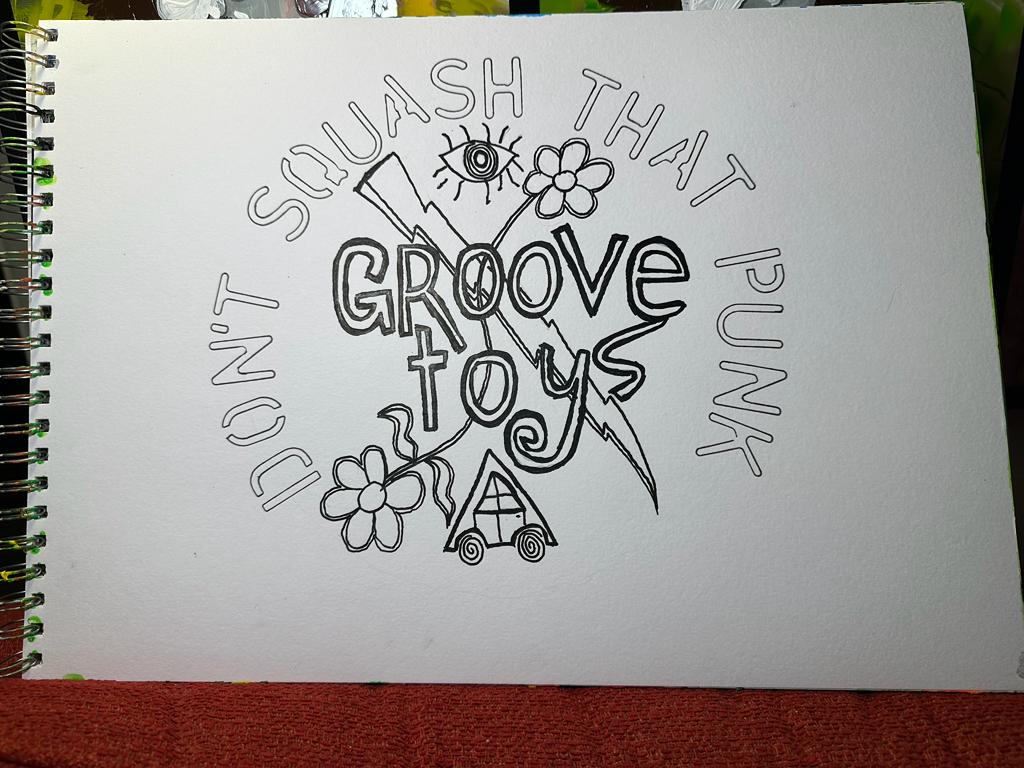 DON'T SQUASH THAT PUNK
GROOVe
toys